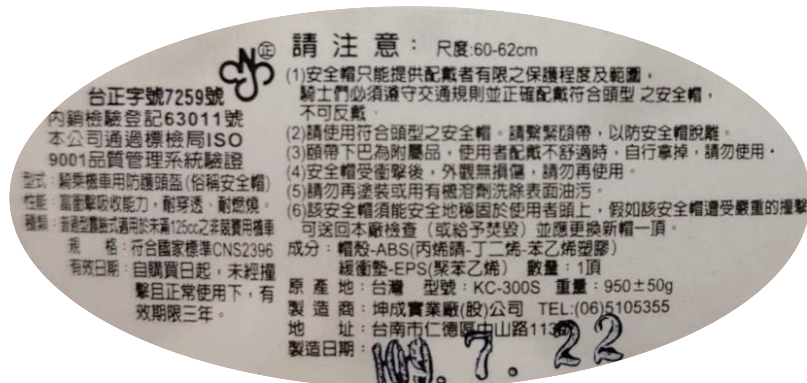 正
台正字號7259號
內銷檢驗登記63011號
本公司通過標檢局ISO
9001品質管理系統驗證
型式：騎乘機車用防護頭盔(俗稱安全帽)
性能：富衝擊吸收能力，耐穿透、耐燃燒。
種類：普通型露臉式適用於未滿125cc之非競賽用機車
規 格：符合國家標準CNS2396
有效日期：自購買日起，未經撞
擊且正常使用下，有
效期限三年。
請注意： 尺度:60-62cm
(1)安全帽只能提供配戴者有限之保護程度及範圍，
騎士們必須遵守交通規則並正確配戴符合頭型 之安全帽，
不可反戴
(2)請使用符合頭型之安全帽。請繫緊頤帶，以防安全帽脫離。
(3)頤帶下巴為附屬品，使用者配戴不舒適時，自行拿掉，請勿使用。
(4)安全帽受衝擊後，外觀無損傷，請勿再使用。
(5)請勿再塗裝或用有機溶劑洗除表面油污。
(6)該安全帽須能安全地穩固於使用者頭上，假如該安全帽遭受嚴重的撞擊
可送回本廠檢查（或給予焚毀）並應更換新帽一頂。
成分：帽殼-ABS(丙烯腈-丁二烯-苯乙烯塑膠)
緩衝墊-EPS(聚苯乙烯) 數量：1頂
原產地：台灣 型號：KC-300S 重量：950±50g
製造商：坤成實業廠(股)公司 TEL:(06)5105355
地 址：台南市仁德區中山路113
製造日期：109.7.22